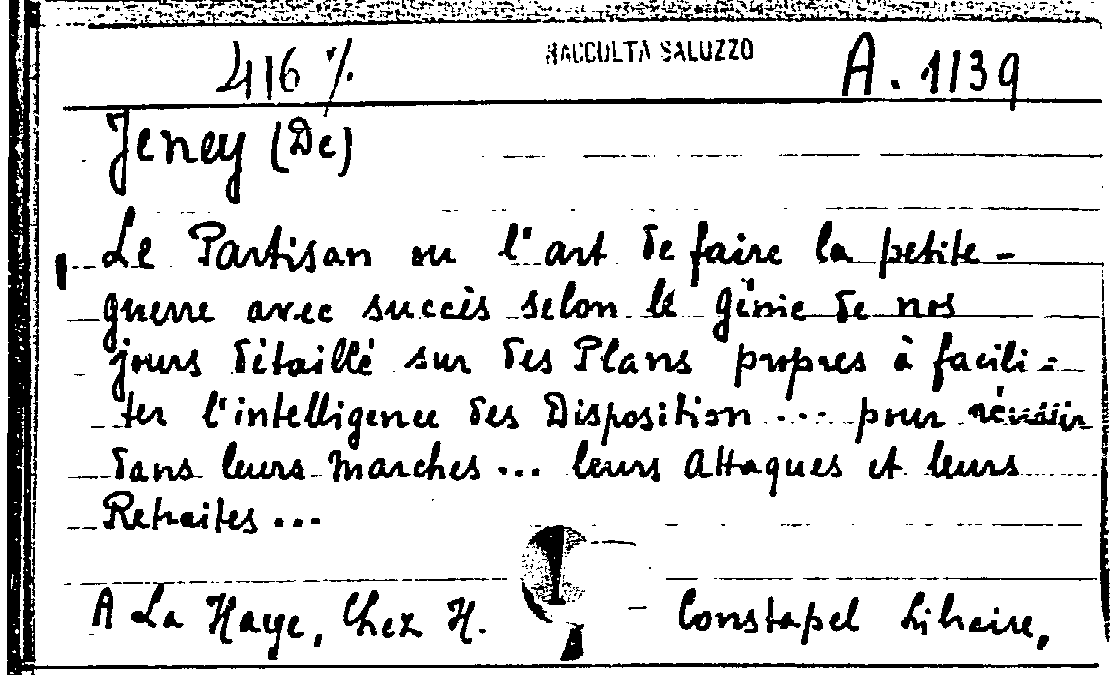 416 %
RACCOLTA SALUZZO
A. 1139
Jeney (De)
Le Partisan ou l'art de faire la petite-
guerre avec succès selon le génie de nos
jours détaillé sur des Plans propres à facili=
ter l'intelligence des Disposition ... pour réussir
dans leurs marches ... leurs Attaques et leurs
Retraites ...
A La Haye, Chez H. Constapel Libraire,